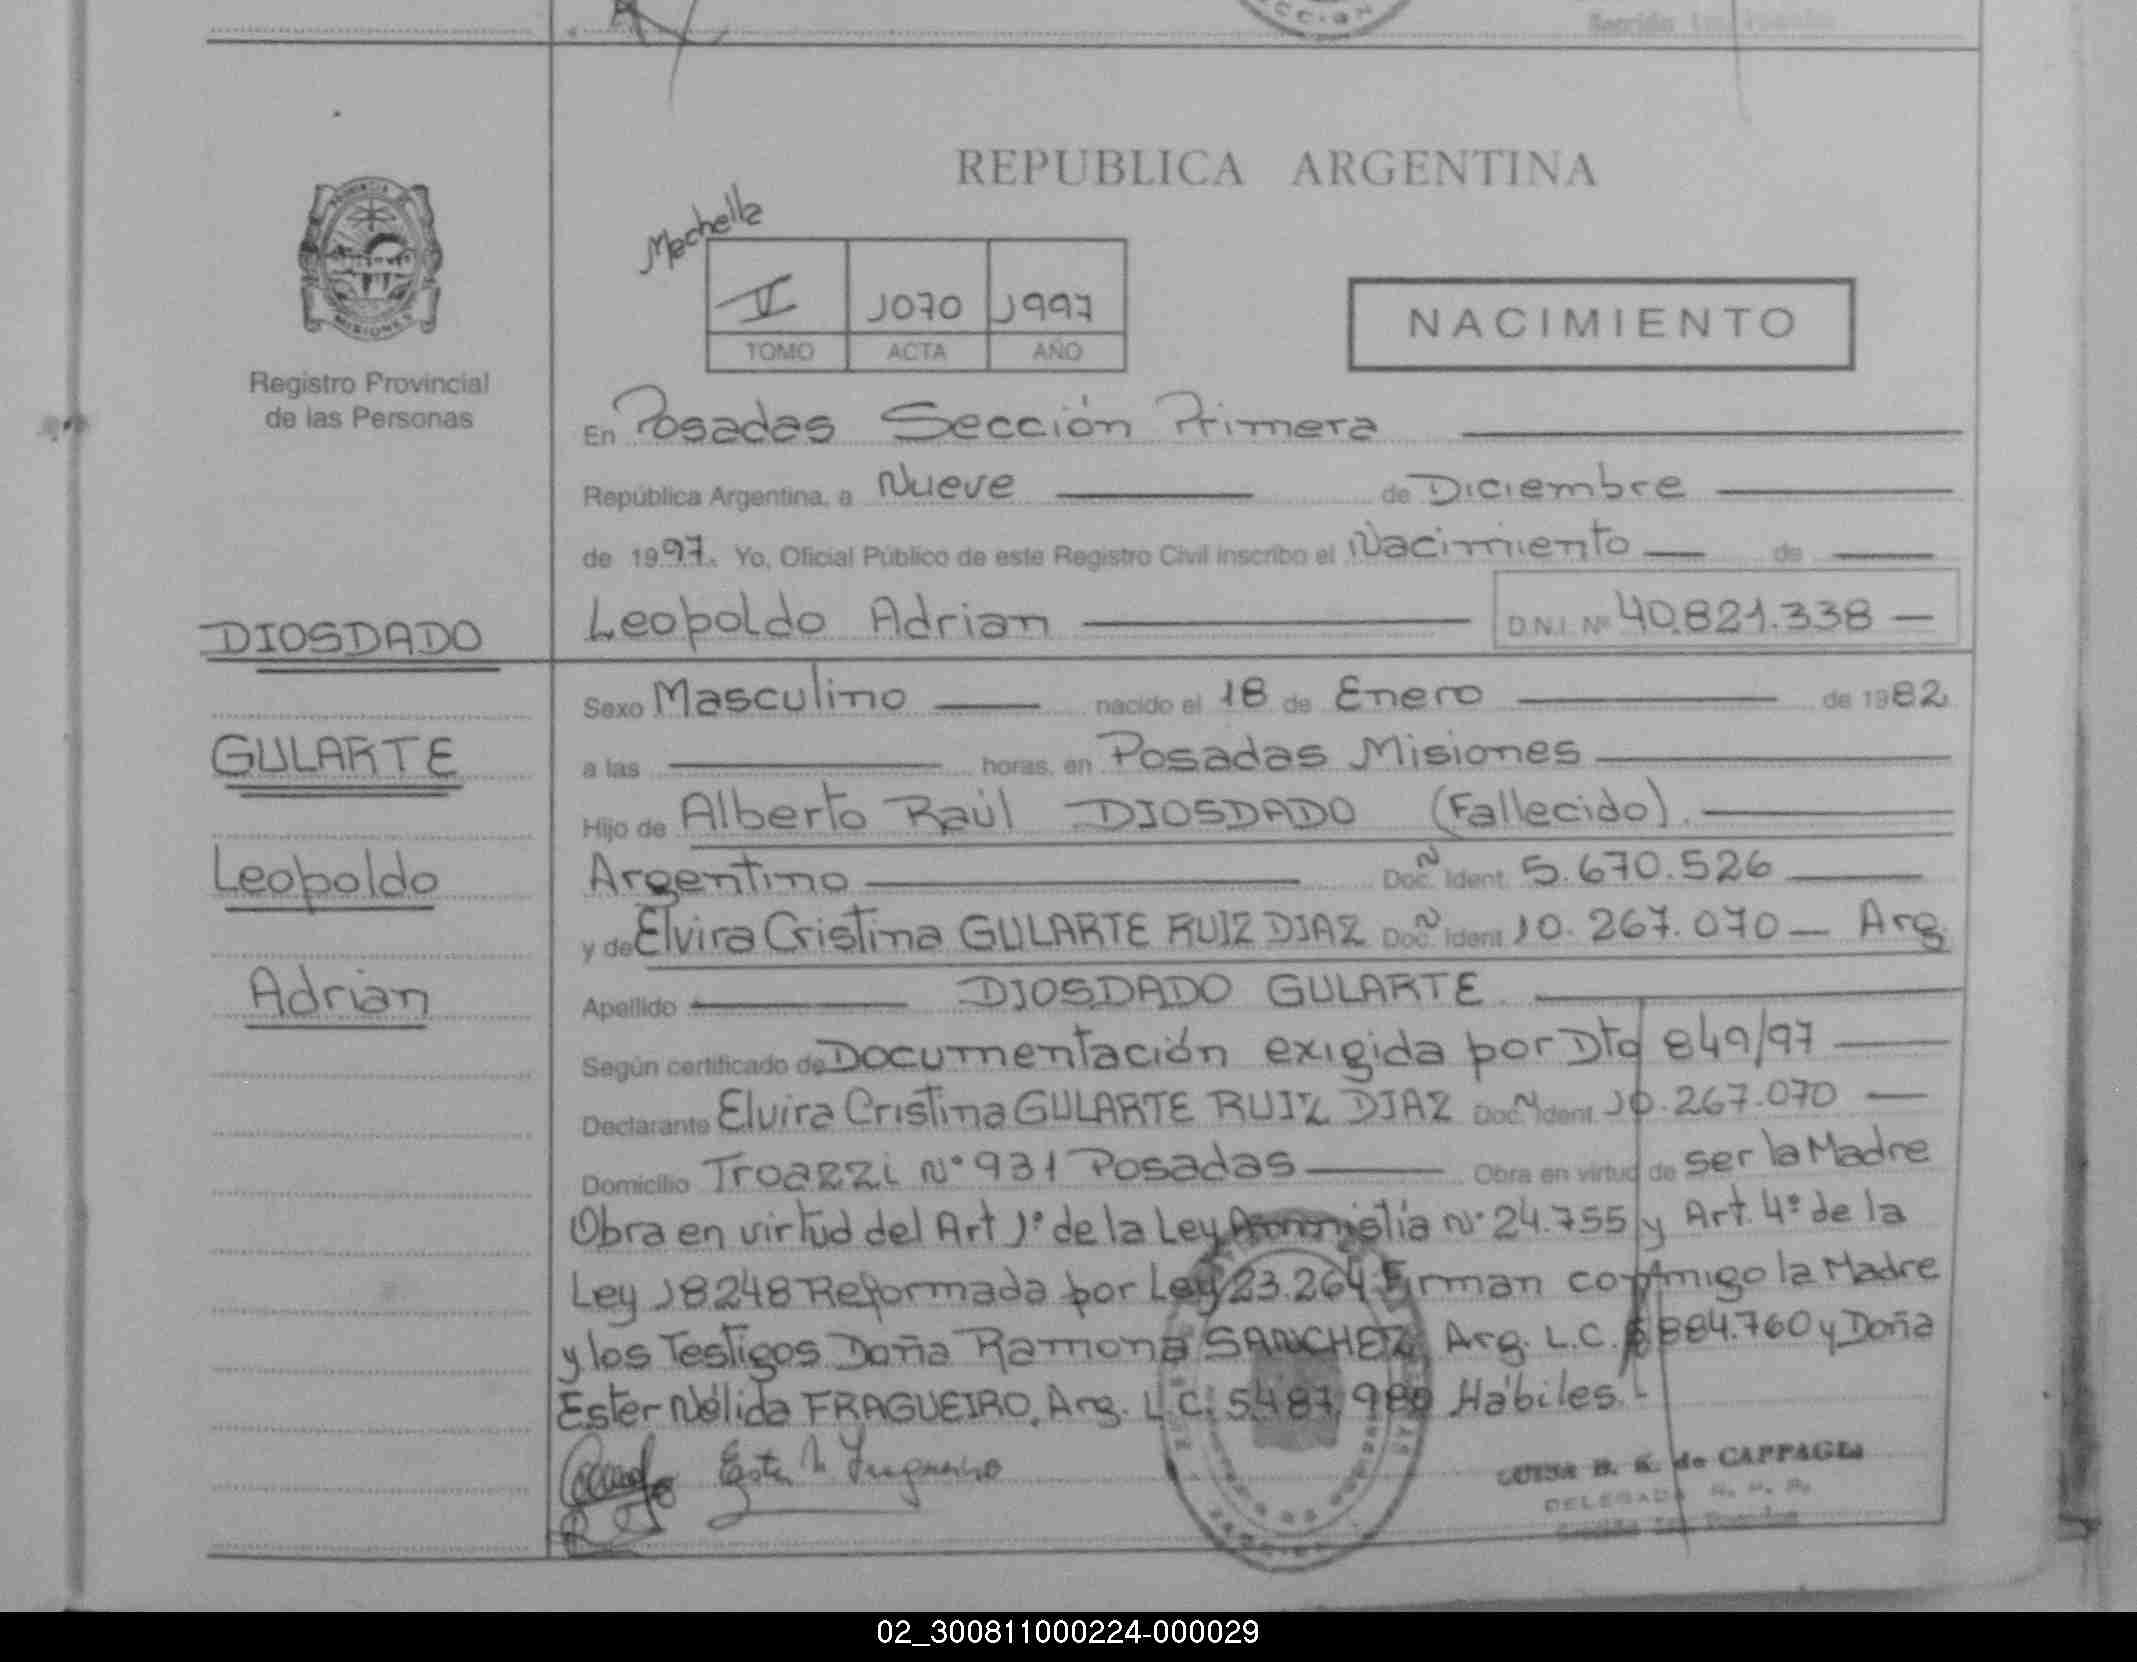 REPUBLICA ARGENTINA
PROVINCIA
MISIONES
Registro Provincial
de las Personas
Mechella
V 1070 1997
TOMO ACTA AÑO
NACIMIENTO
En Posadas Sección Primera
República Argentina, a Nueve de Diciembre
de 1997. Yo, Oficial Público de este Registro Civil inscribo el Nacimiento de
DIOSDADO
GULARTE
Leopoldo
Adrian
Leopoldo Adrian D.N.I. Nº 40.821.338
Sexo Masculino nacido el 18 de Enero de 1982
a las horas, en Posadas Misiones
Hijo de Alberto Raúl DIOSDADO (Fallecido).
Argentino Doc. N Ident. 5.670.526
y de Elvira Cristina GULARTE RUIZ DIAZ Doc. N Ident. 10.267.070 Arg.
Apellido DIOSDADO GULARTE
Según certificado de Documentación exigida por Dto 849/97
Declarante Elvira Cristina GULARTE RUIZ DIAZ Doc. N Ident. 10.267.070
Domicilio Troazzi Nº 931 Posadas Obra en virtud de ser la Madre
Obra en virtud del Art 1º de la Ley Amnistía Nº 24.755 y Art. 4º de la
Ley 18248 Reformada por Ley 23.264 Firman conmigo la Madre
y los Testigos Doña Ramona SANCHEZ Arg. L.C. 884.760 y Doña
Ester Nélida FRAGUEIRO, Arg. L.C. 5.487.980 Hábiles.
Ester N Fragueiro
de CAPPAGLI
DELEGADA R. P. P.
02_300811000224-000029